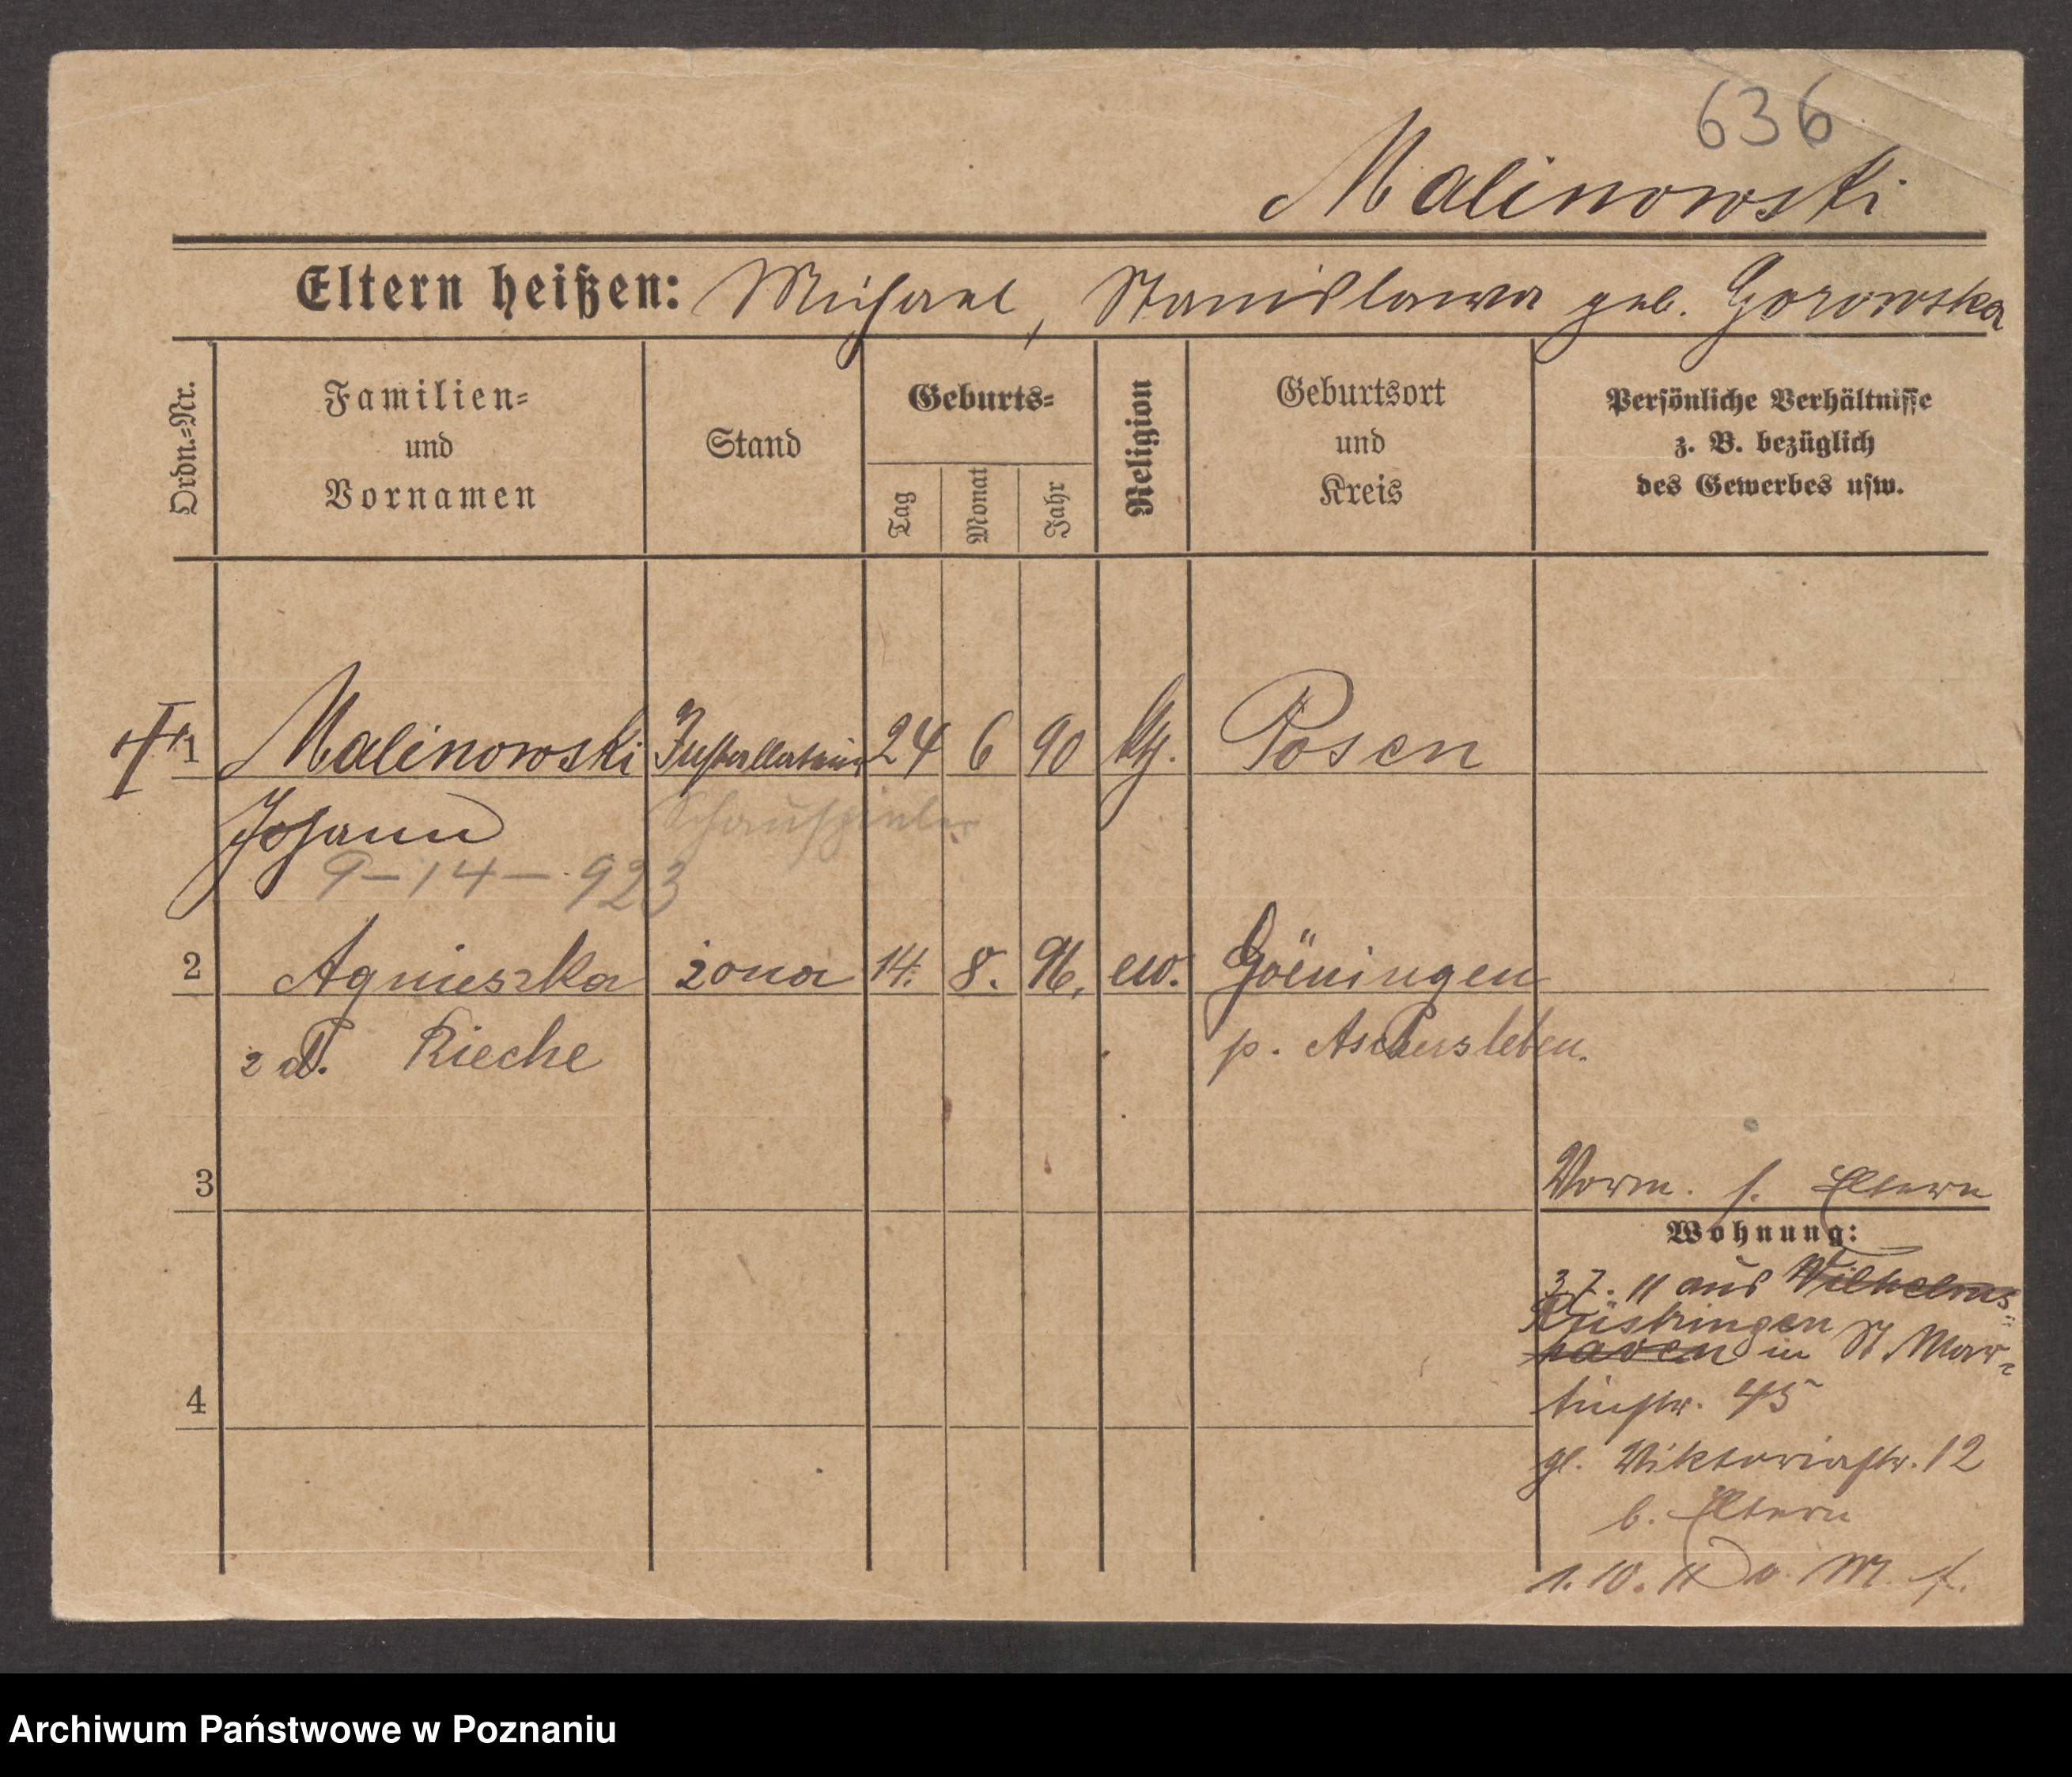 636
Malinowski
Eltern heißen: Michael, Stanislawa geb. Gorowska
Ordn.=Nr.
Familien=
und
Vornamen
Stand
Geburts=
Tag
Monat
Jahr
Religion
Geburtsort
und
Kreis
Persönliche Verhältnisse
z. B. bezüglich
des Gewerbes usw.
1 Malinowski Installateur 24 6 90 kg. Posen
Johann Schauspieler
9-14-923
2 Agnieszka żona 14. 8. 96. ew.
z d. Rieche p. Aschersleben.
3
Vorm. s. Eltern
Wohnung:
3 7. 11 aus Wilhelms=
Rüstringen
haven in St. Mar=
tinstr. 45
gl. Viktoriastr. 12
b. Eltern
1. 10. 11
4
Archiwum Państwowe w Poznaniu